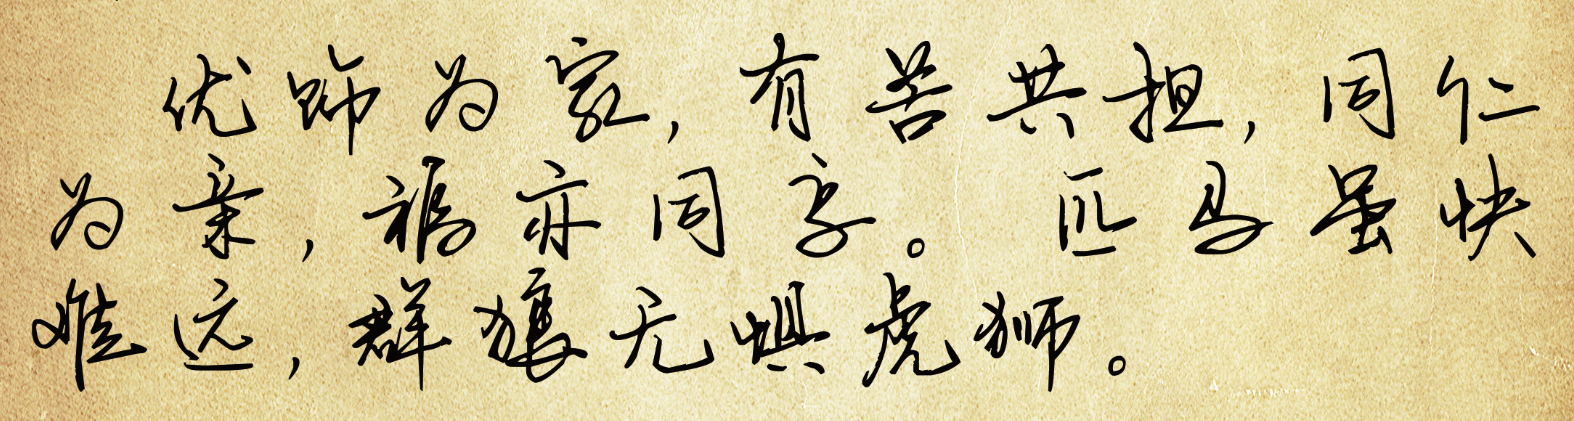 优饰为家,有苦共担,同仁
为亲,福亦同享。匹马虽快
难远,群狼无惧虎狮。